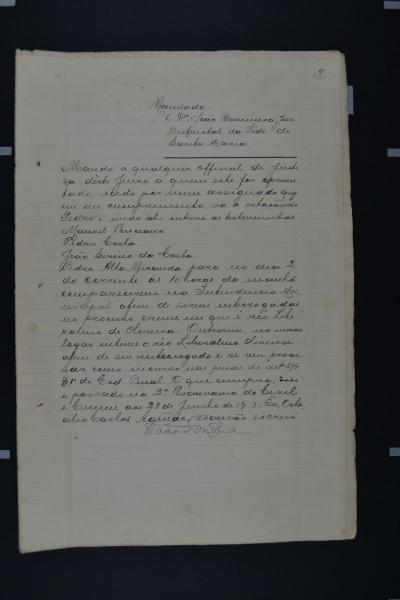 2
Mandado
O Dr. João Bonuma, Juiz
Districtal da Séde de
Santa Maria
Mando a qualquer official de justi
ça deste Juizo a quem este for apresen
tado, indo por mim assignado que
em seu cumprimento, va a estação de
Pedro e sendo ahi intime as testemunhas
Manoel
Pedro Costa
João Sereno da Costa
Pedro Alta Miranda para no dia 2
do corrente as 10 horas da manhã
comparecerem na Intendencia Mu
nicipal afim de serem interrogadas
no processo crime em que é réo Libe
ralino de Oliveira. Outrosim, no mesmo
logar intime o réo Liberalino Oliveira
afim de ser interrogado e se ver proces
sar como incurso nas penas do artº 294
§ 1º do Cod. Penal. O que cumpra,
e passado na 2ª Escrivania do Civel
e Crime aos 28 de Junho de 19 3. Eu, Octa
cilio Carlos Aguiar, escrivão escrevi
João Bonumá